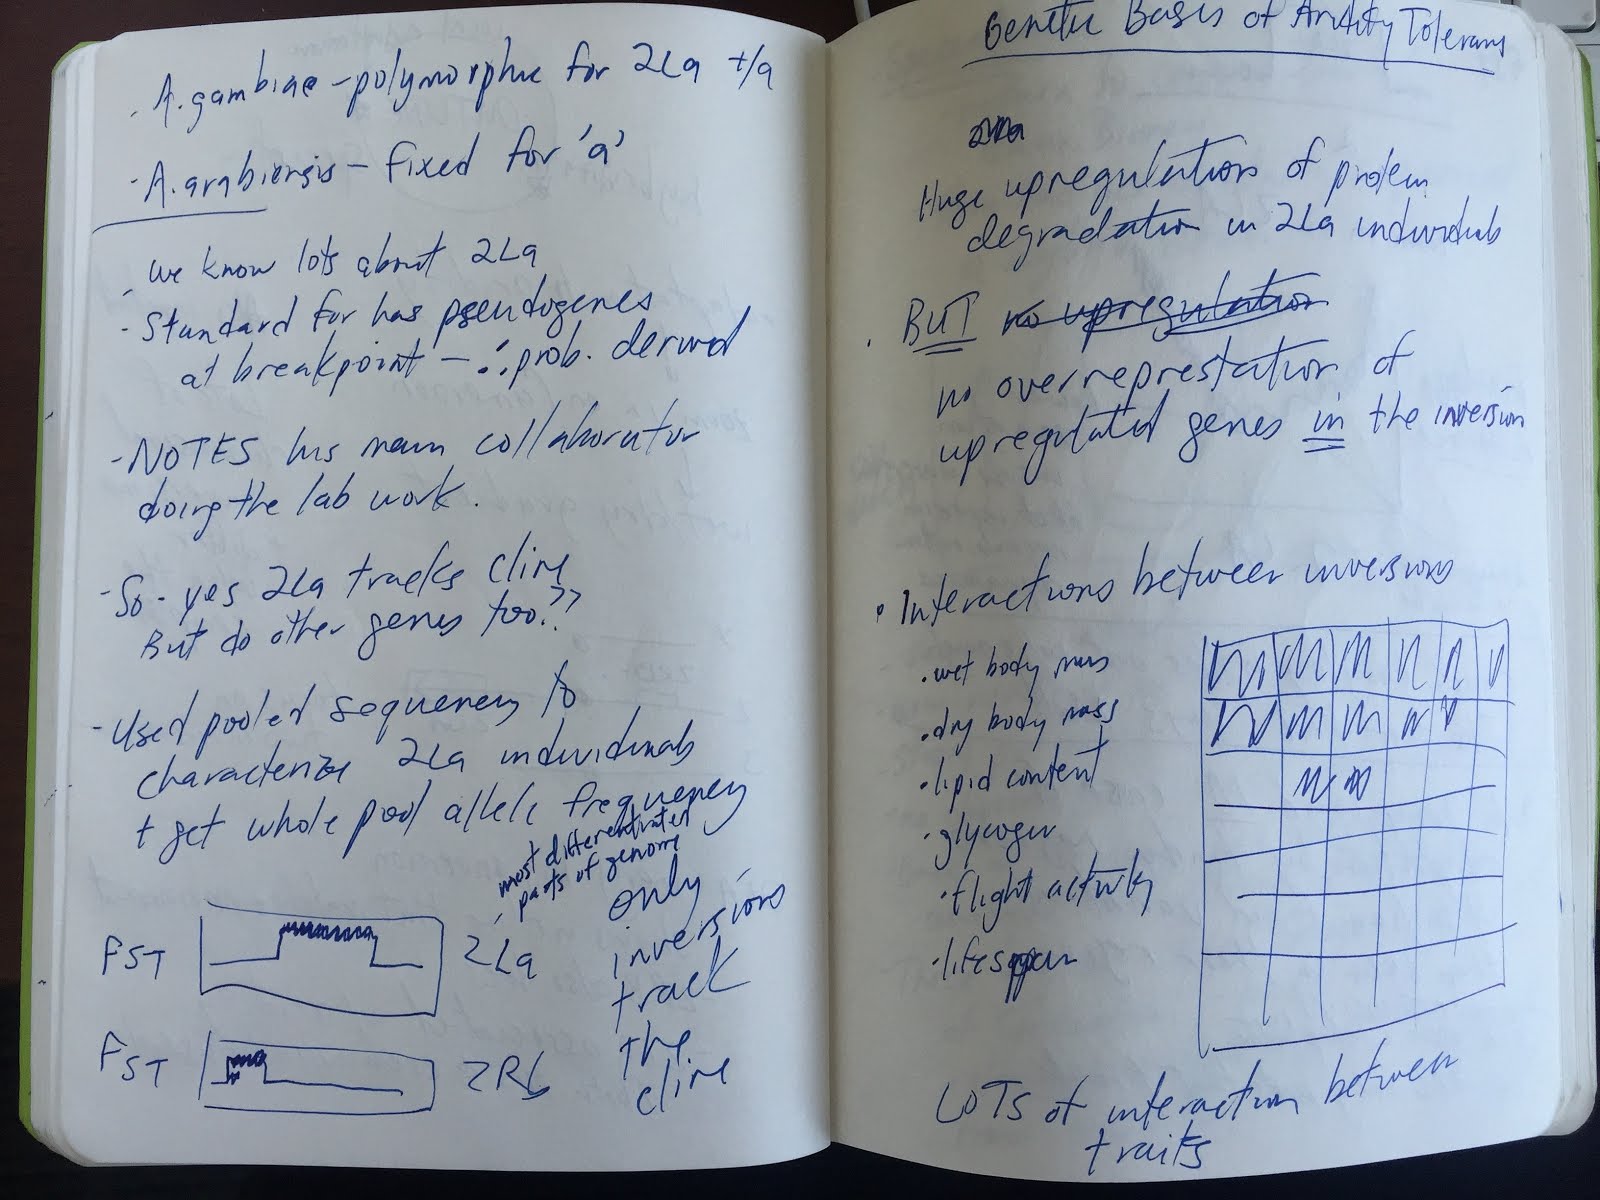 · A. gambiae - polymorphic for 2La +/a
· A. arabiensis - fixed for 'a'
· we know lots about 2La
- Standard for has pseudogenes
at breakpoint - ∴ prob. derived
- NOTES his main collaborator
doing the lab work.
- So - yes 2La tracks cline
But do other genes too??
- Used pooled sequencing to
characterize 2La individuals
+ get whole pool allele frequency
most differentiated
parts of genome
FST
2La
FST
2Rb
only
inversions
track
the
cline
Genetic Basis of Aridity Tolerans
Huge upregulation of protein
degradation in 2La individuals
· BUT no upregulation
no overreprestation of
upregulated genes in the inversion
• Interactions between inversions
· wet body mass
· dry body mass
· lipid content
· glycogen
· flight activity
· lifespan
LOTS of interaction between
traits